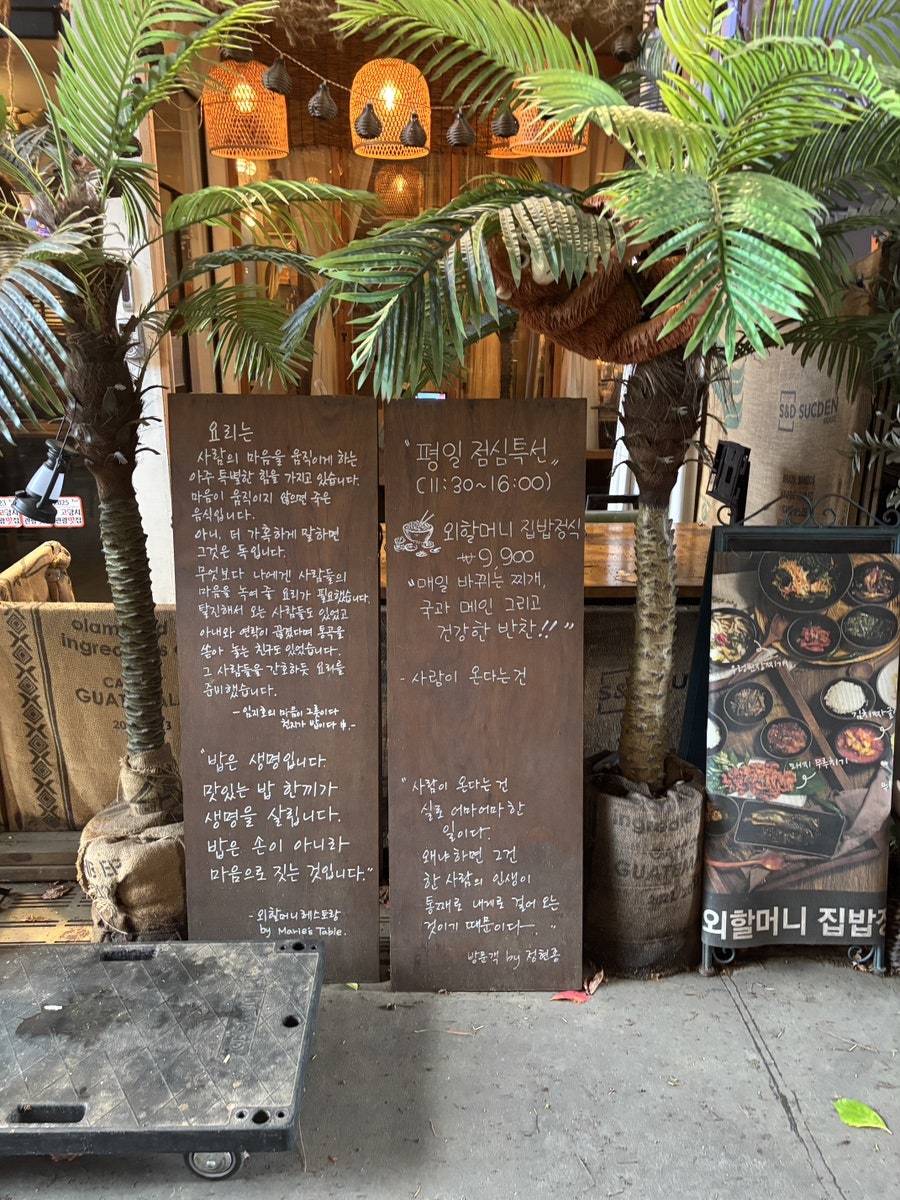 요리는
사람의 마음을 움직이게 하는
아주 특별한 힘을 가지고 있습니다.
마음이 움직이지 않으면 죽은
음식입니다.
아니. 더 가혹하게 말하면
그것은 독입니다.
무엇보다 나에겐 사람들의
마음을 녹여줄 요리가 필요했습니다.
탈진해서 오는 사람들도 있었고
아내와 연락이 끊겼다며 통곡을
쏟아 놓는 친구도 있었습니다.
그 사람들을 간호하듯 요리를
준비했습니다.
-임지호의 마음이 그릇이다
천지가 밥이다 中.-
"밥은 생명입니다.
맛있는 밥 한끼가
생명을 살립니다.
밥은 손이 아니라
마음으로 짓는 것입니다."
-외할머니레스토랑
by Marie's Table.
"평일 점심특선"
(11:30~16:00)
외할머니 집밥정식
₩9,900
"매일 바뀌는 찌개,
국과 메인 그리고
건강한 반찬!!"
-사람이 온다는건
"사람이 온다는건
실로 어마어마한
일이다.
왜냐하면 그건
한 사람의 인생이
통째로 내게로 걸어 오는
것이기 때문이다. "
방문객 by 정현종
S&D SUCDEN
GUATEMAL
GUAT
2025
김치짜글
돼지 두루치기
외할머니 집밥정